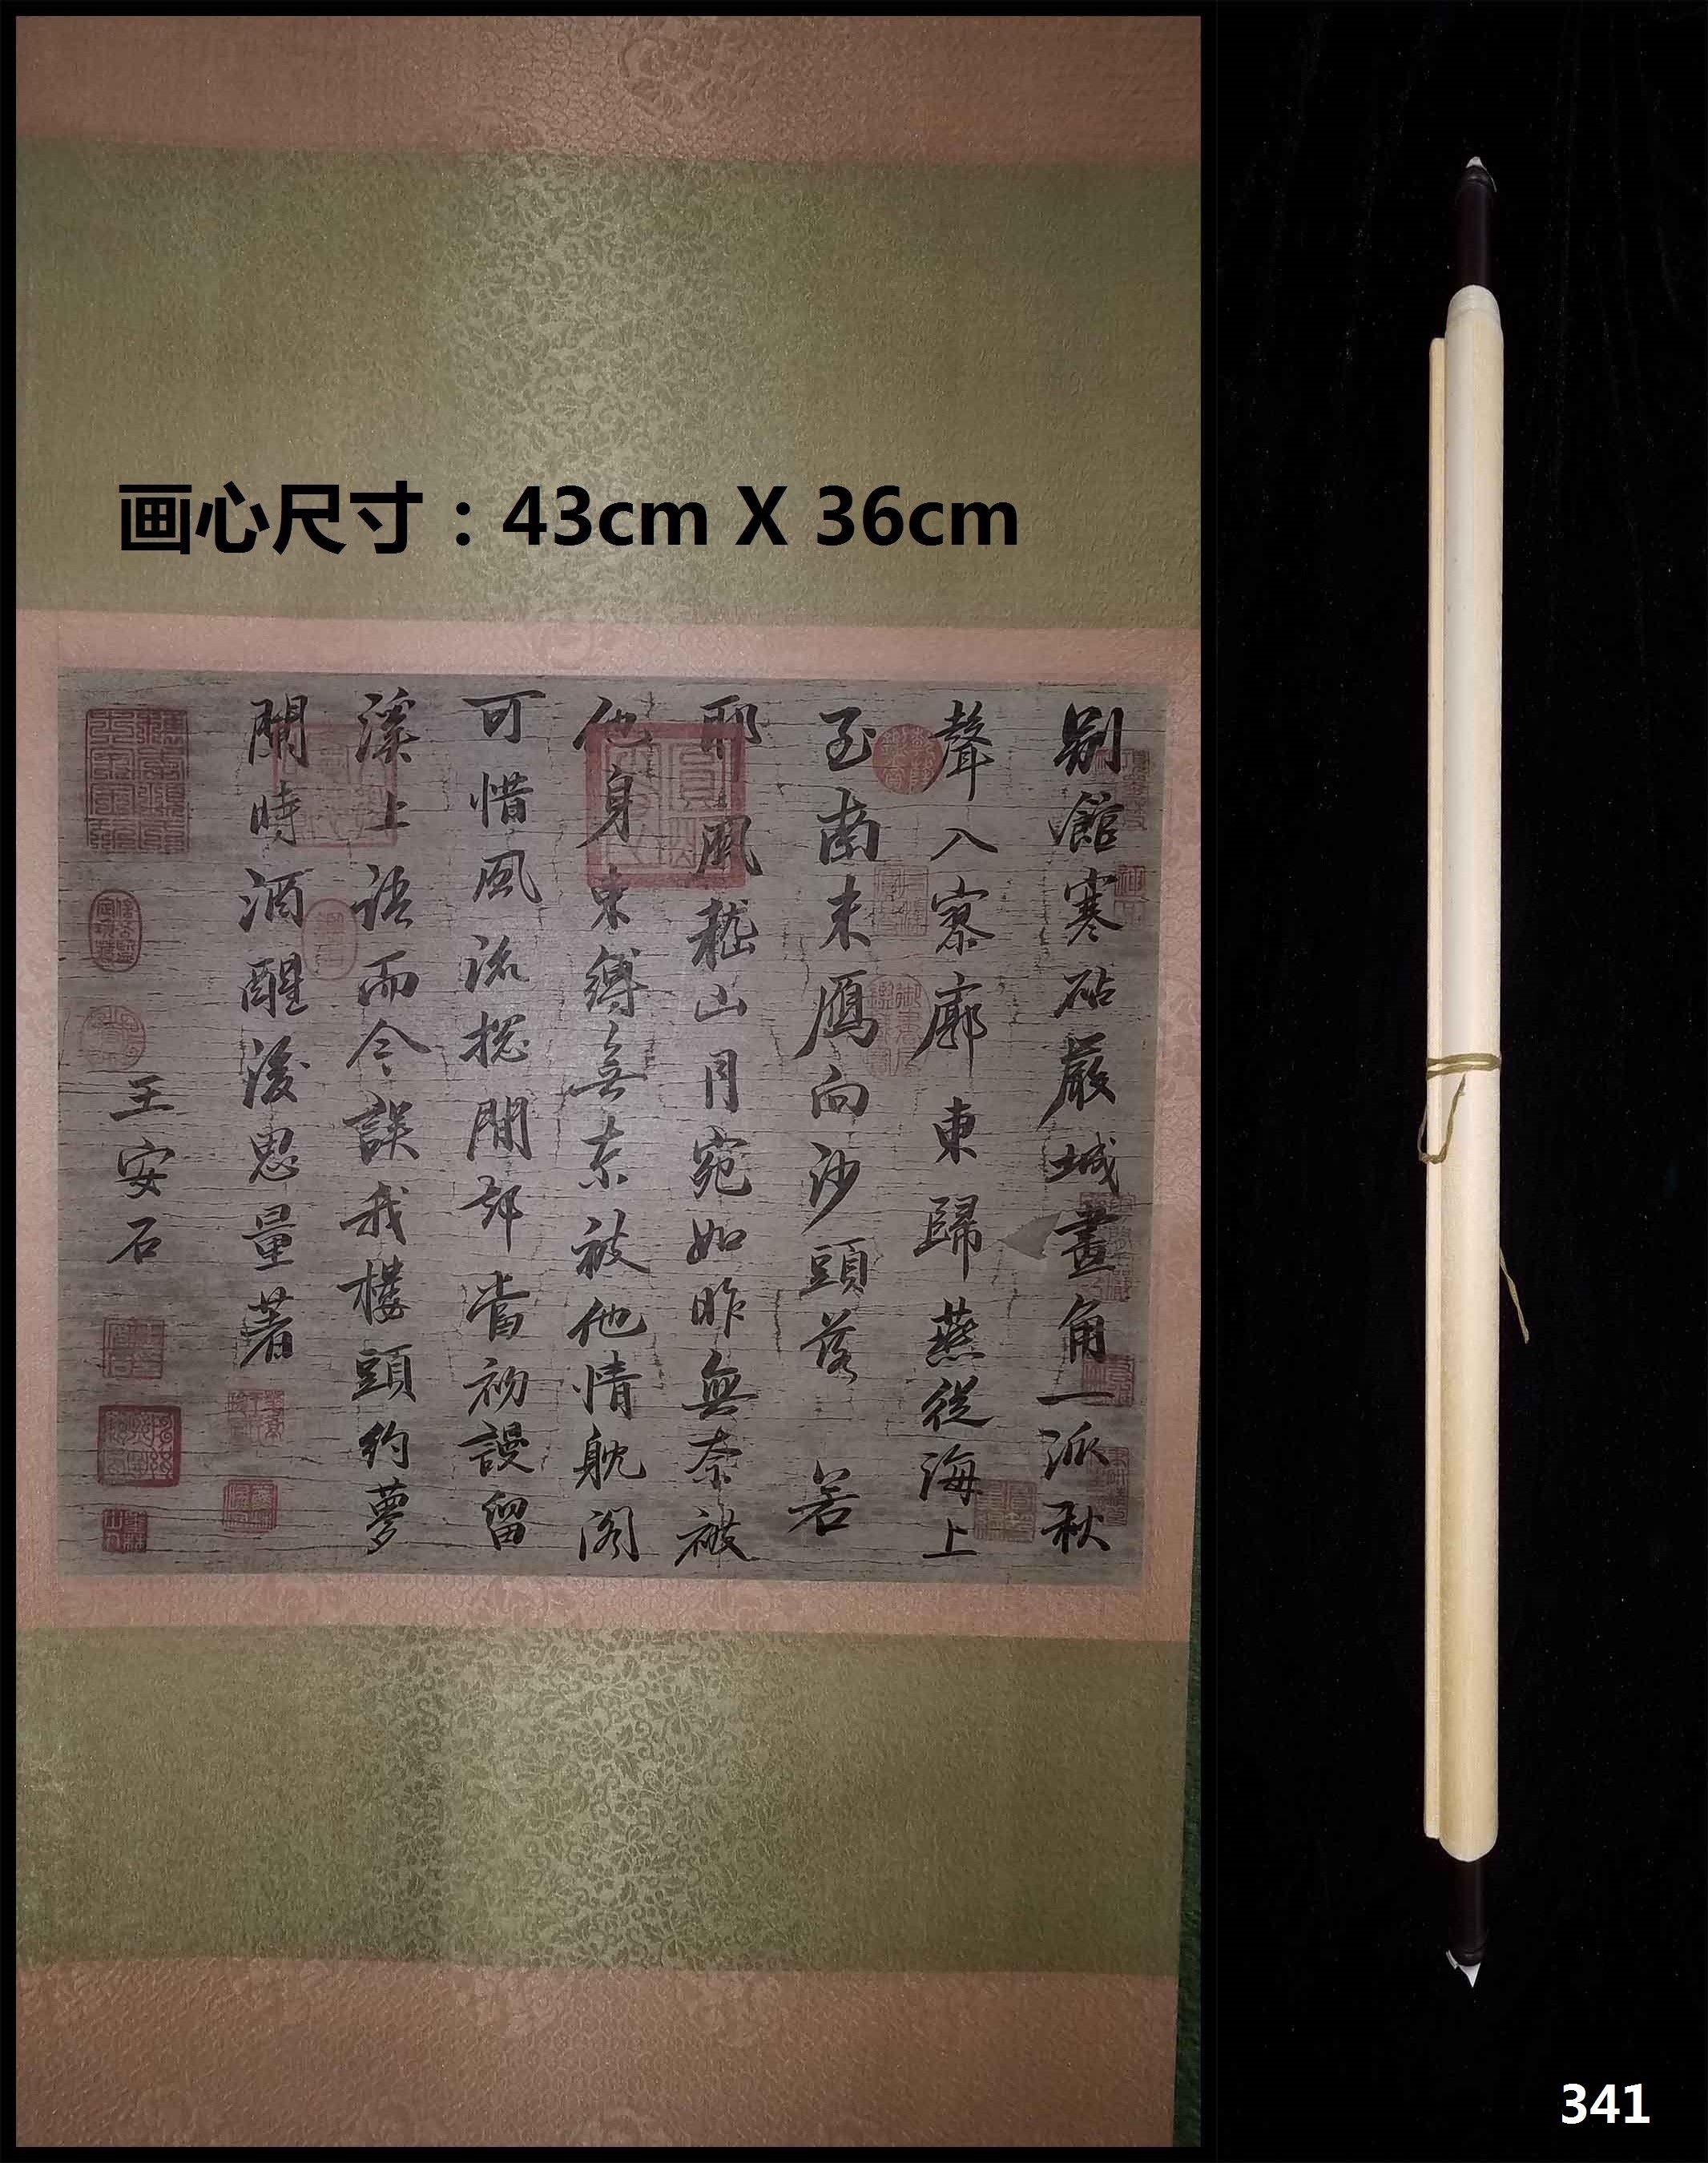 画心尺寸：43cm X 36cm
别館寒砧嚴城畫角一派秋
聲入寥廓東歸燕從海上
至南来鴈向沙頭落 若
耶風嵇山月宛如昨無奈被
他身束縛無奈被他情躭阁
可惜風流揔閒却當初謾留
溪上語而令誤我樓頭約夢
闌時酒醒後思量著
王安石
341